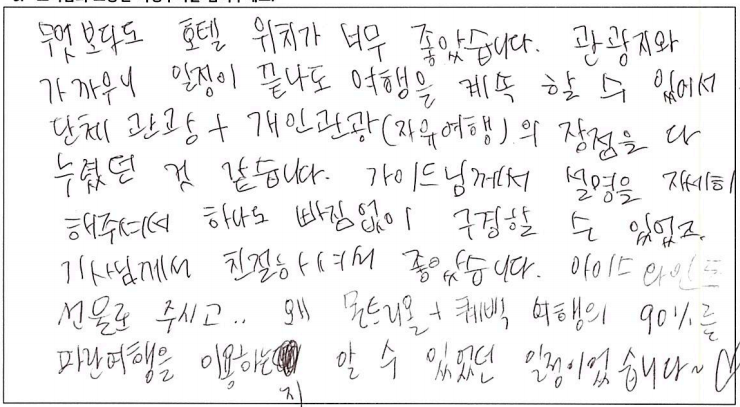 무엇보다도 호텔 위치가 너무 좋았습니다. 관광지와
가까우니 일정이 끝나도 여행을 계속 할 수 있어서
단체 관광 + 개인관광(자유여행)의 장점을 다
누렸던 것 같습니다. 가이드님께서 설명을 자세히
해주셔서 하나도 빠짐없이 구경할 수 있었고.
기사님께서 친절하셔서 좋았습니다. 아이스와인도
선물로 주시고.. 왜 몬트리올 + 퀘벡 여행의 90%를
파란여행을 이용하는지 알 수 있었던 일정이었습니다~